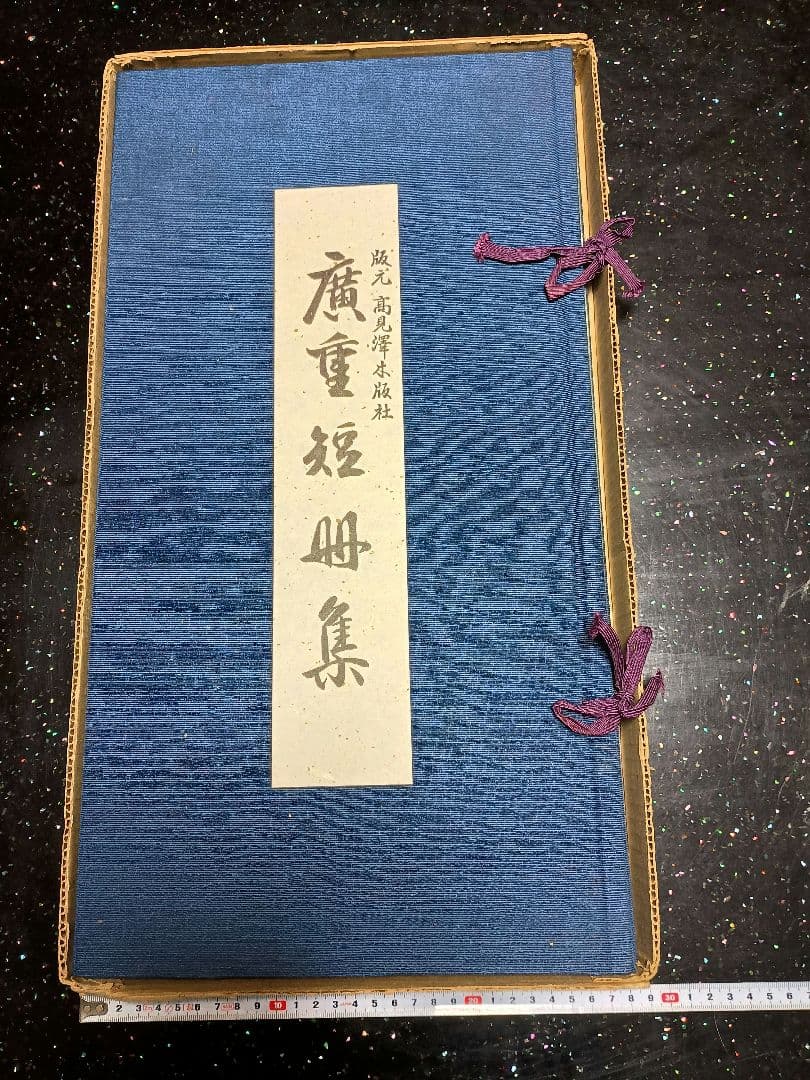 版元 高見澤木版社
廣重短冊集
2 3 4 5 6 7 8 9 10 1 2 3 4 5 6 7 8 9 20 1 2 3 4 5 6 7 8 9 30 1 2 3 4 5 6 7